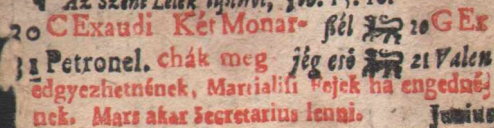 Az Szent Lélek
20 C Exaudi Két Monar- ſzél 20 G Ex
31 Petronel. chák meg jég eső 21 Valen
edgyezhetnének, Martialiſi ha engedné-
nek. Mars akar Secretarius lenni. Junius